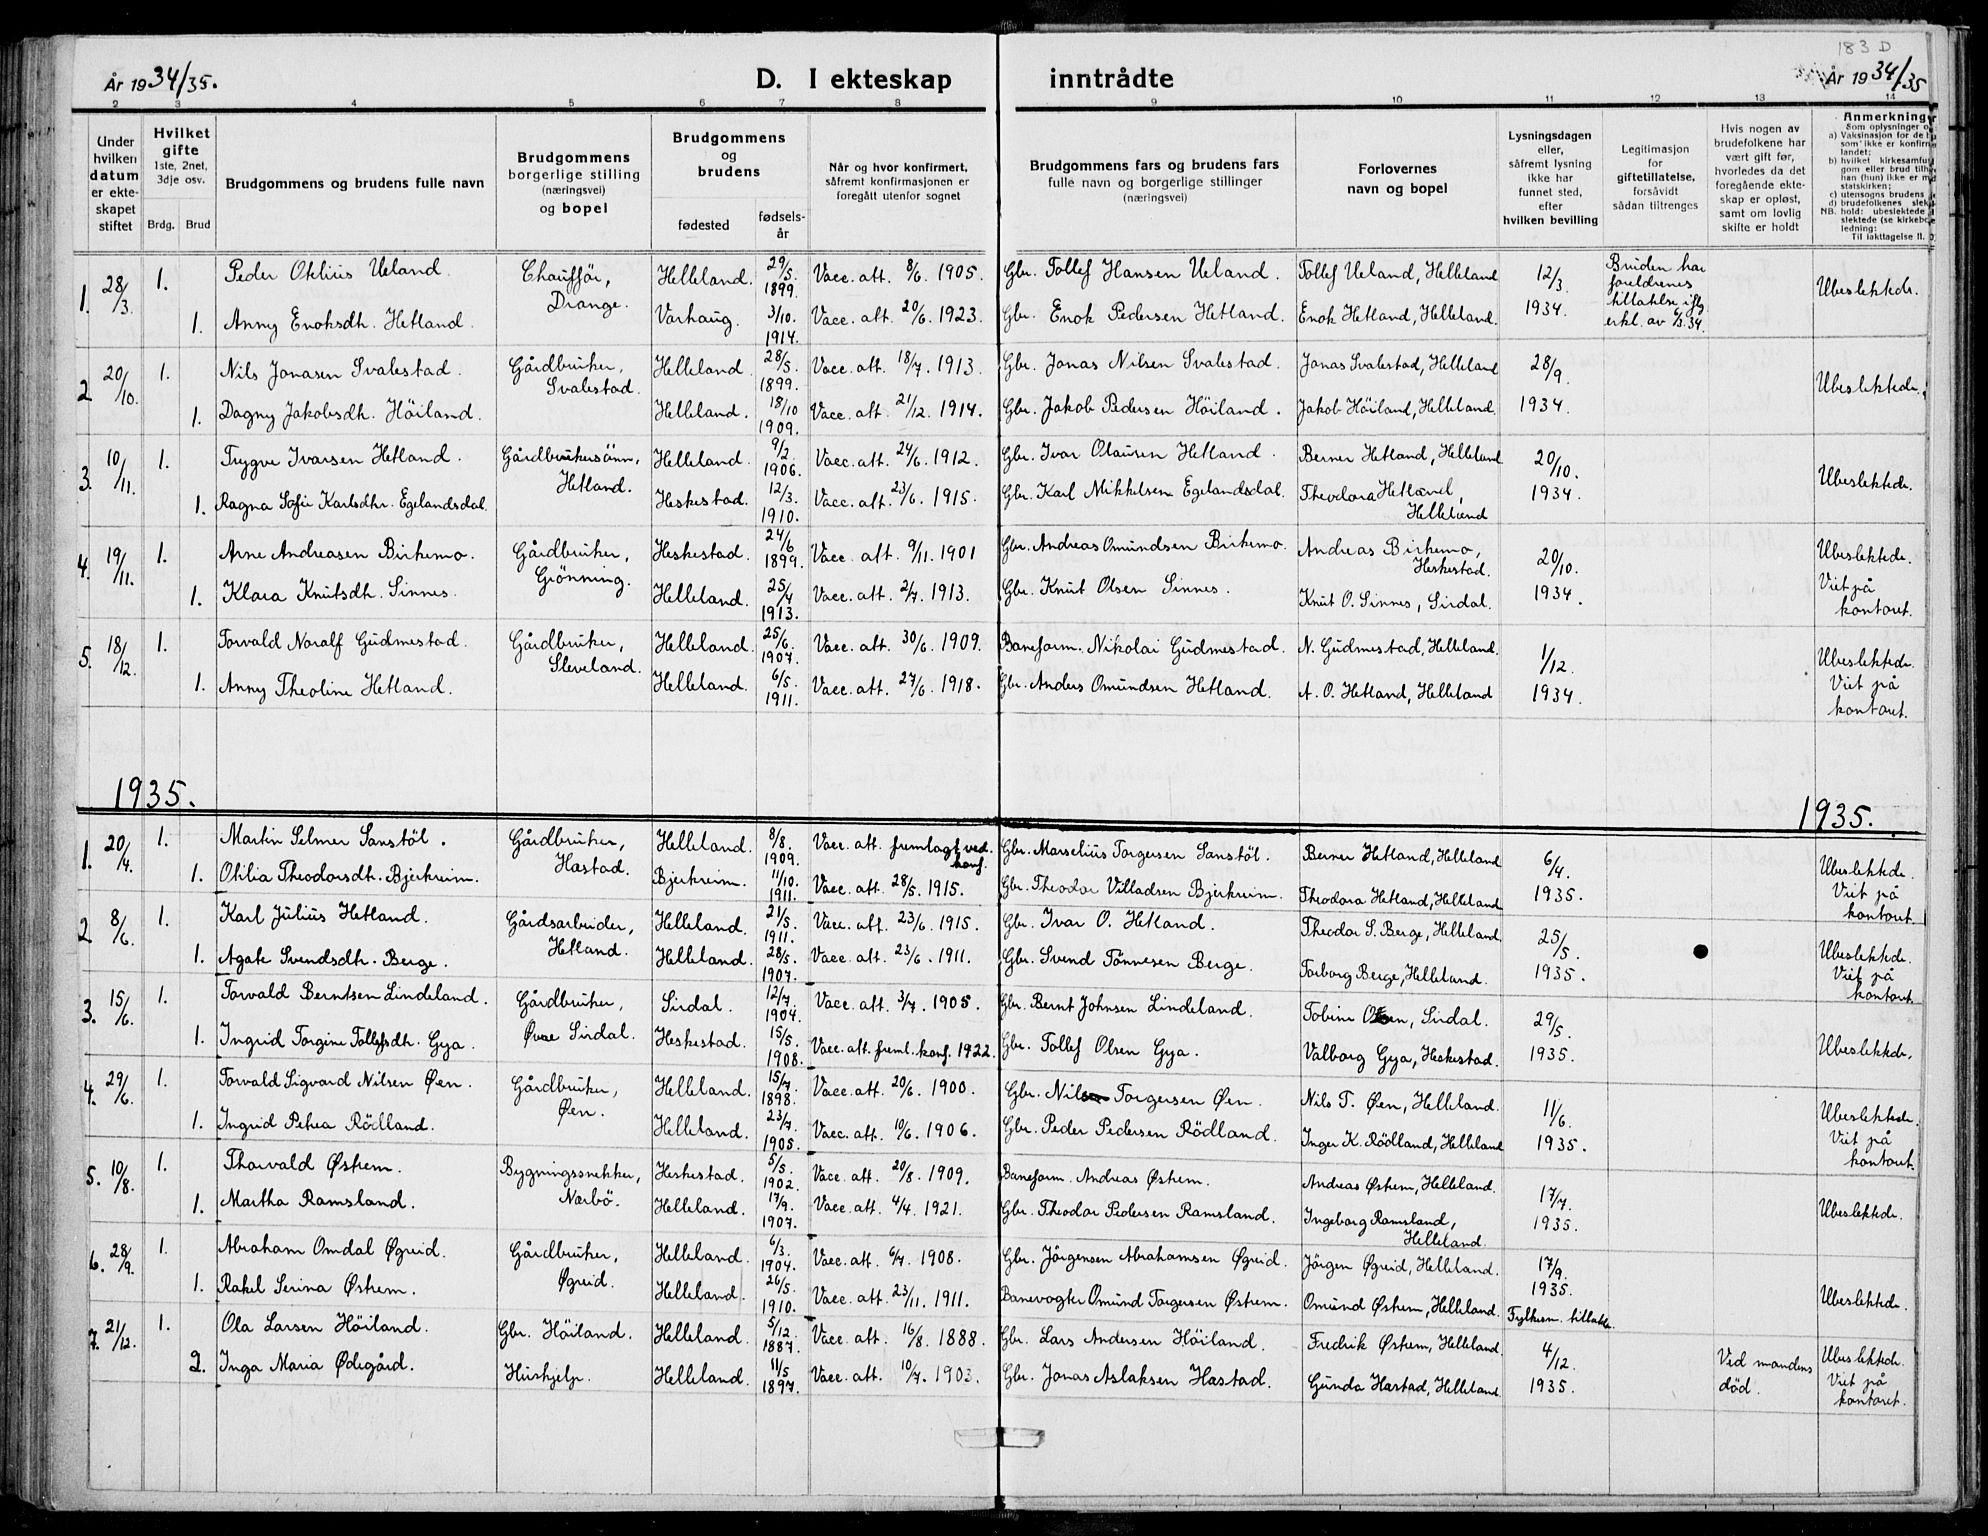 183 D
År 1934/35.
D. I ekteskap inntrådte
År 1934/35
2 3 4 5 6 7 8 9 10 11 12 13 14
Under hvilken datum er ekteskapet stiftet
Hvilket gifte 1ste, 2net, 3dje osv.
Brdg. Brud
Brudgommens og brudens fulle navn
Brudgommens borgerlige stilling (næringsvei) og bopel
Brudgommens og brudens
fødested
fødselsår
Når og hvor konfirmert, såfremt konfirmasjonen er foregått utenfor sognet
Brudgommens fars og brudens fars fulle navn og borgerlige stillinger (næringsvei)
Forlovernes navn og bopel
Lysningsdagen eller, såfremt lysning ikke har funnet sted, efter hvilken bevilling
Legitimasjon for giftetillatelse, forsåvidt sådan tiltrenges
Hvis nogen av brudefolkene har vært gift før, hvorledes da det foregående ekteskap er opløst, samt om lovlig skifte er holdt
Anmerkning
Som oplysninger
a) Vaksinasjon for de
som ikke er konfirm
landet;
b) hvilket kirkesamfu
gom eller brud tilh
han (hun) ikke er m
statskirken;
c) utensogns brudens
d) brudefolkenes slek
NB. hold: ubeslektede
slektede (se kirkeb
ledning:
Til iakttagelse II.
1. 28/3 1. Peder Otilius Ueland. Chauffør, Drange. Helleland. 29/5. 1899. Vacc. att. 8/6. 1905. Gbr. Tollef Hansen Ueland. Tollef Ueland, Helleland 12/3. 1934. Bruden har foreldrenes tillatelse iflg erkl. av 6/3.34. Ubeslektede.
1. Anny Enoksdh. Hetland. Varhaug. 3/10. 1914. Vacc. att. 20/6. 1923. Gbr. Enok Pedersen Hetland. Enok Hetland, Helleland.
2 20/10. 1. Nils Jonasen Svalestad. Gårdbruker, Svalestad. Helleland 28/5. 1899. Vacc. att. 18/7. 1913. Gbr. Jonas Nilsen Svalestad. Jonas Svalestad, Helleland 28/9. 1934. Ubeslektede.
1. Dagny Jakobsdh. Höiland. Helleland. 18/10 1909. Vacc. att. 21/12. 1914. Gbr. Jakob Pedersen Höiland. Jakob Höiland, Helleland.
3. 10/11. 1. Trygve Ivarsen Hetland. Gårdbrukersönn, Hetland. Helleland. 9/2. 1906. Vacc. att. 24/6. 1912. Gbr. Ivar Olausen Hetland. Berner Hetland, Helleland 20/10. 1934. Ubeslektede.
1. Ragna Sofie Karlsdtr. Egelandsdal. Heskestad. 12/3. 1910. Vacc. att. 23/6. 1915. Gbr. Karl Mikkelsen Egelandsdal. Theodora Hetland, Helleland
4. 19/11. 1. Arne Andreasen Birkemo. Gårdbruker, Grönning. Heskestad. 24/6 1899. Vacc. att. 9/11. 1901 Gbr. Andreas Omundsen Birkemo. Andreas Birkemo, Heskestad. 20/10. 1934. Ubeslektede. Viet på kontoret.
1. Klara Knutsdh. Sinnes. Helleland. 25/4 1913. Vacc. att. 2/7. 1913. Gbr. Knut Olsen Sinnes. Knut O. Sinnes, Sirdal.
5. 18/12. 1. Torvald Noralf Gudmestad. Gårdbruker, Sleveland. Helleland. 25/6. 1907. Vacc. att. 30/6. 1909. Baneform. Nikolai Gudmestad. N. Gudmestad, Helleland. 1/12. 1934. Ubeslektede. Viet på kontoret.
1. Anny Theoline Hetland. Helleland. 6/5 1911. Vacc. att. 27/6. 1918. Gbr. Anders Omundsen Hetland. A. O. Hetland, Helleland
1935. 1935.
1. 20/4. 1. Martin Selmer Sanstöl. Gårdbruker, Hastad. Helleland. 8/8. 1909. Vacc. att. fremlagt ved konf. Gbr. Marselius Torgersen Sanstöl. Berner Hetland, Helleland 6/4. 1935. Ubeslektede. Viet på kontoret.
1. Otilia Theodorsdh. Bjerkreim. Bjerkreim. 11/10. 1911. Vacc. att. 28/5. 1915. Gbr. Theodor Villadsen Bjerkreim. Theodora Hetland, Helleland
2 8/6. 1. Karl Julius Hetland. Gårdsarbeider, Hetland. Helleland. 21/5. 1911. Vacc. att. 23/6. 1915. Gbr. Ivar O. Hetland. Theodor S. Berge, Helleland. 25/5. 1935. Ubeslektede. Viet på kontoret.
1. Agate Svendsdh. Berge. Helleland. 28/5. 1907. Vacc. att. 23/6. 1911. Gbr. Svend Tönnesen Berge. Torborg Berge, Helleland.
3. 15/6. 1. Torvald Berntsen Lindeland. Gårdbruker, Øvre Sirdal. Sirdal. 12/7. 1904. Vacc. att. 3/7. 1905. Gbr. Bernt Johnsen Lindeland. Tobine Olsen, Sirdal. 29/5. 1935. Ubeslektede.
1. Ingrid Torgine Tollefsdh. Gya. Heskestad. 15/5. 1908. Vacc. att. freml. konf. 1922. Gbr. Tollef Olsen Gya. Valborg Gya, Heskestad.
4. 29/6. 1. Torvald Sigvard Nilsen Øen. Gårdbruker, Øen. Helleland. 15/7. 1898. Vacc. att. 20/6. 1900. Gbr. Nils Torgersen Øen. Nils T. Øen, Helleland. 11/6. 1935. Ubeslektede. Viet på kontoret.
1. Ingrid Petrea Rödland. Helleland. 23/7. 1905. Vacc. att. 10/6. 1906. Gbr. Peder Pedersen Rödland. Inger K. Rödland, Helleland
5. 10/8. 1. Thorvald Østrem. Bygningssnekker, Nærbö. Heskestad. 5/5. 1902. Vacc. att. 20/8. 1909. Baneform. Andreas Østrem. Andreas Østrem, Helleland. 17/7. 1935. Ubeslektede.
1. Martha Ramsland. Helleland. 17/9. 1907. Vacc. att. 4/4. 1921. Gbr. Theodor Pedersen Ramsland. Ingeborg Ramsland, Helleland.
6. 28/9. 1. Abraham Omdal Øgreid. Gårdbruker, Øgreid. Helleland. 6/3. 1904. Vacc. att. 6/7. 1908. Gbr. Jörgensen Abrahamsen Øgreid. Jörgen Øgreid, Helleland. 17/9. 1935. Ubeslektede.
1. Rakel Serina Østrem. Helleland. 26/5. 1910. Vacc. att. 23/11. 1911. Banevogter Omund Torgersen Østrem. Omund Østrem, Helleland.
7. 21/12. 1. Ola Larsen Höiland. Gbr. Höiland. Helleland. 5/12. 1887. Vacc. att. 16/8. 1888. Gbr. Lars Andersen Höiland. Fredrik Østrem, Helleland. Fylkesm. tillatelse. 4/12. 1935. Ved mandens död. Ubeslektede. Viet på kontoret.
2. Inga Maria Ødegård. Hushjelp. Helleland. 11/5 1897. Vacc. att. 10/7. 1903. Gbr. Jonas Aslaksen Hastad. Gunda Hastad, Helleland.